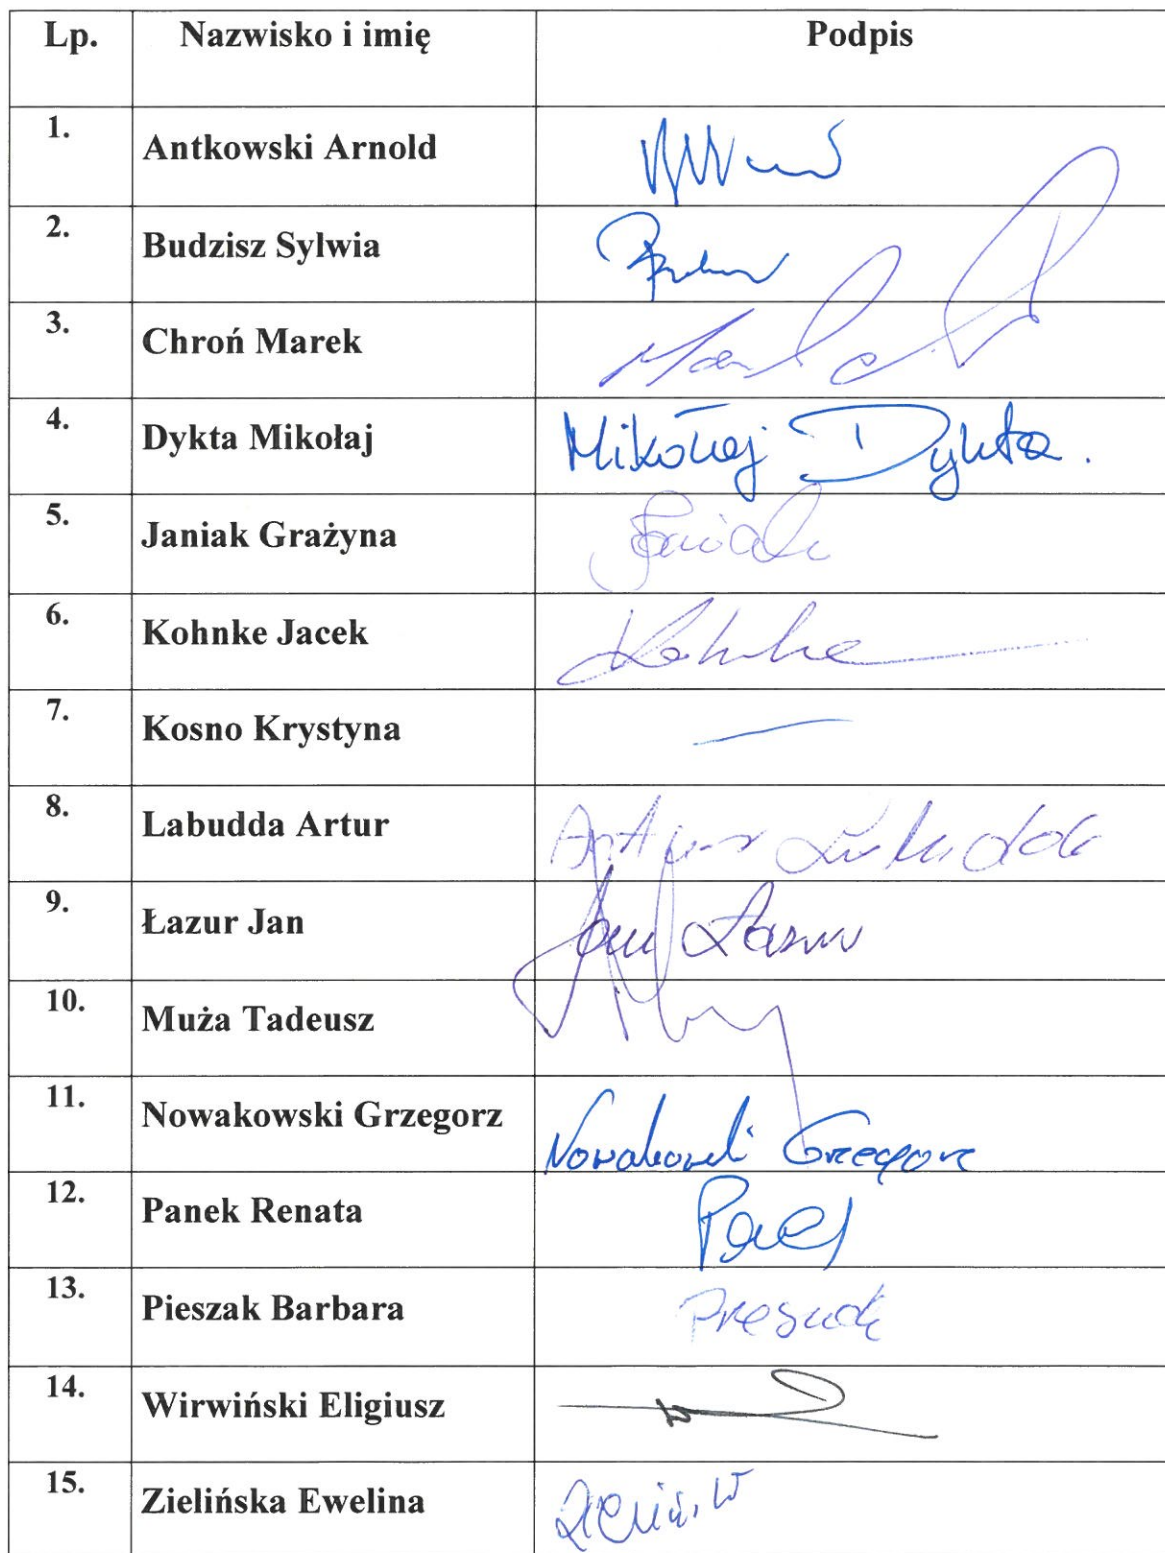 Lp. Nazwisko i imię Podpis
1. Antkowski Arnold
2. Budzisz Sylwia
3. Chroń Marek
4. Dykta Mikołaj Mikołaj Dykta.
5. Janiak Grażyna
6. Kohnke Jacek Kohnke
7. Kosno Krystyna —
8. Labudda Artur Artur Labudda
9. Łazur Jan Jan Łazur
10. Muża Tadeusz
11. Nowakowski Grzegorz Nowakowski Grzegorz
12. Panek Renata
13. Pieszak Barbara
14. Wirwiński Eligiusz
15. Zielińska Ewelina